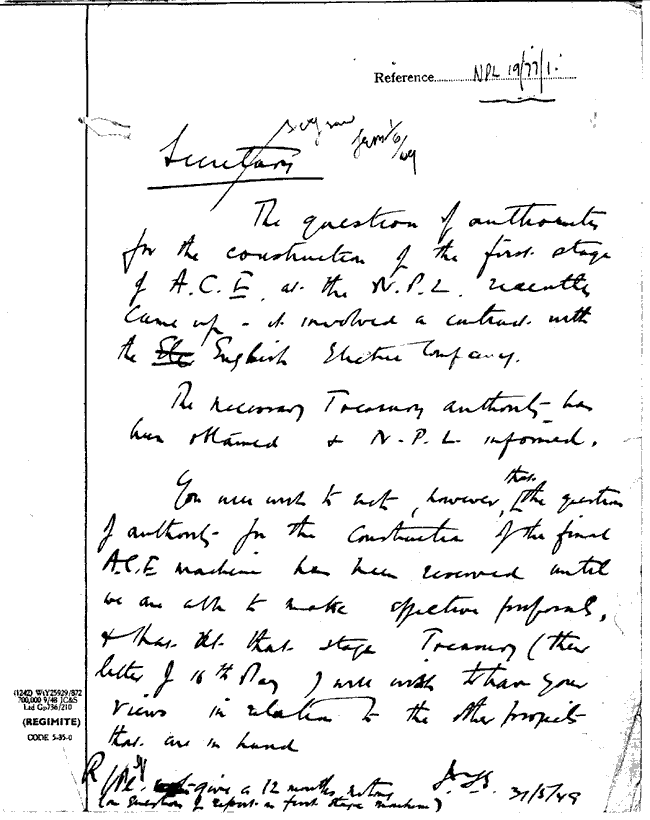 Reference NPL 19/77/1.
Secretary
The question of authority
for the construction of the first stage
of A.C.E. at the N.P.L. recently
came up - it involved a contract with
the English Electric Company.
The necessary Treasury authority has
been obtained & N.P.L. informed.
You will wish to note, however, that the question
of authority for the construction of the final
A.C.E machine has been reserved until
we are able to make effective proposals,
& that at that stage Treasury (their
letter of 16th May) will wish to have your
views in relation to the other projects
that are in hand
(1242) Wt.Y25929/872
700,000 9/48 JC&S
Ltd Gp736/210
(REGIMITE)
CODE 5-35-0
give a 12 months
31/5/49
(on question of report on first stage machine)